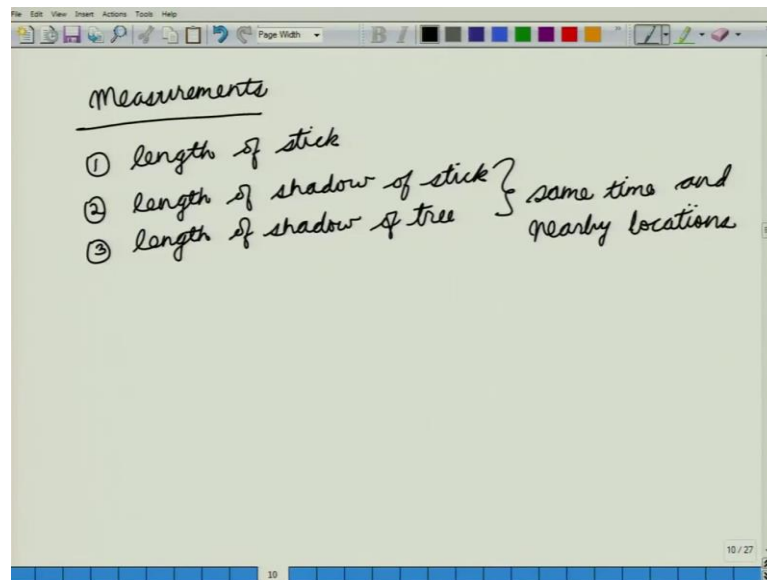 File Edit View Insert Actions Tools Help
Page Width
B I
Measurements
① length of stick
② length of shadow of stick } same time and
③ length of shadow of tree nearby locations
10 / 27
10